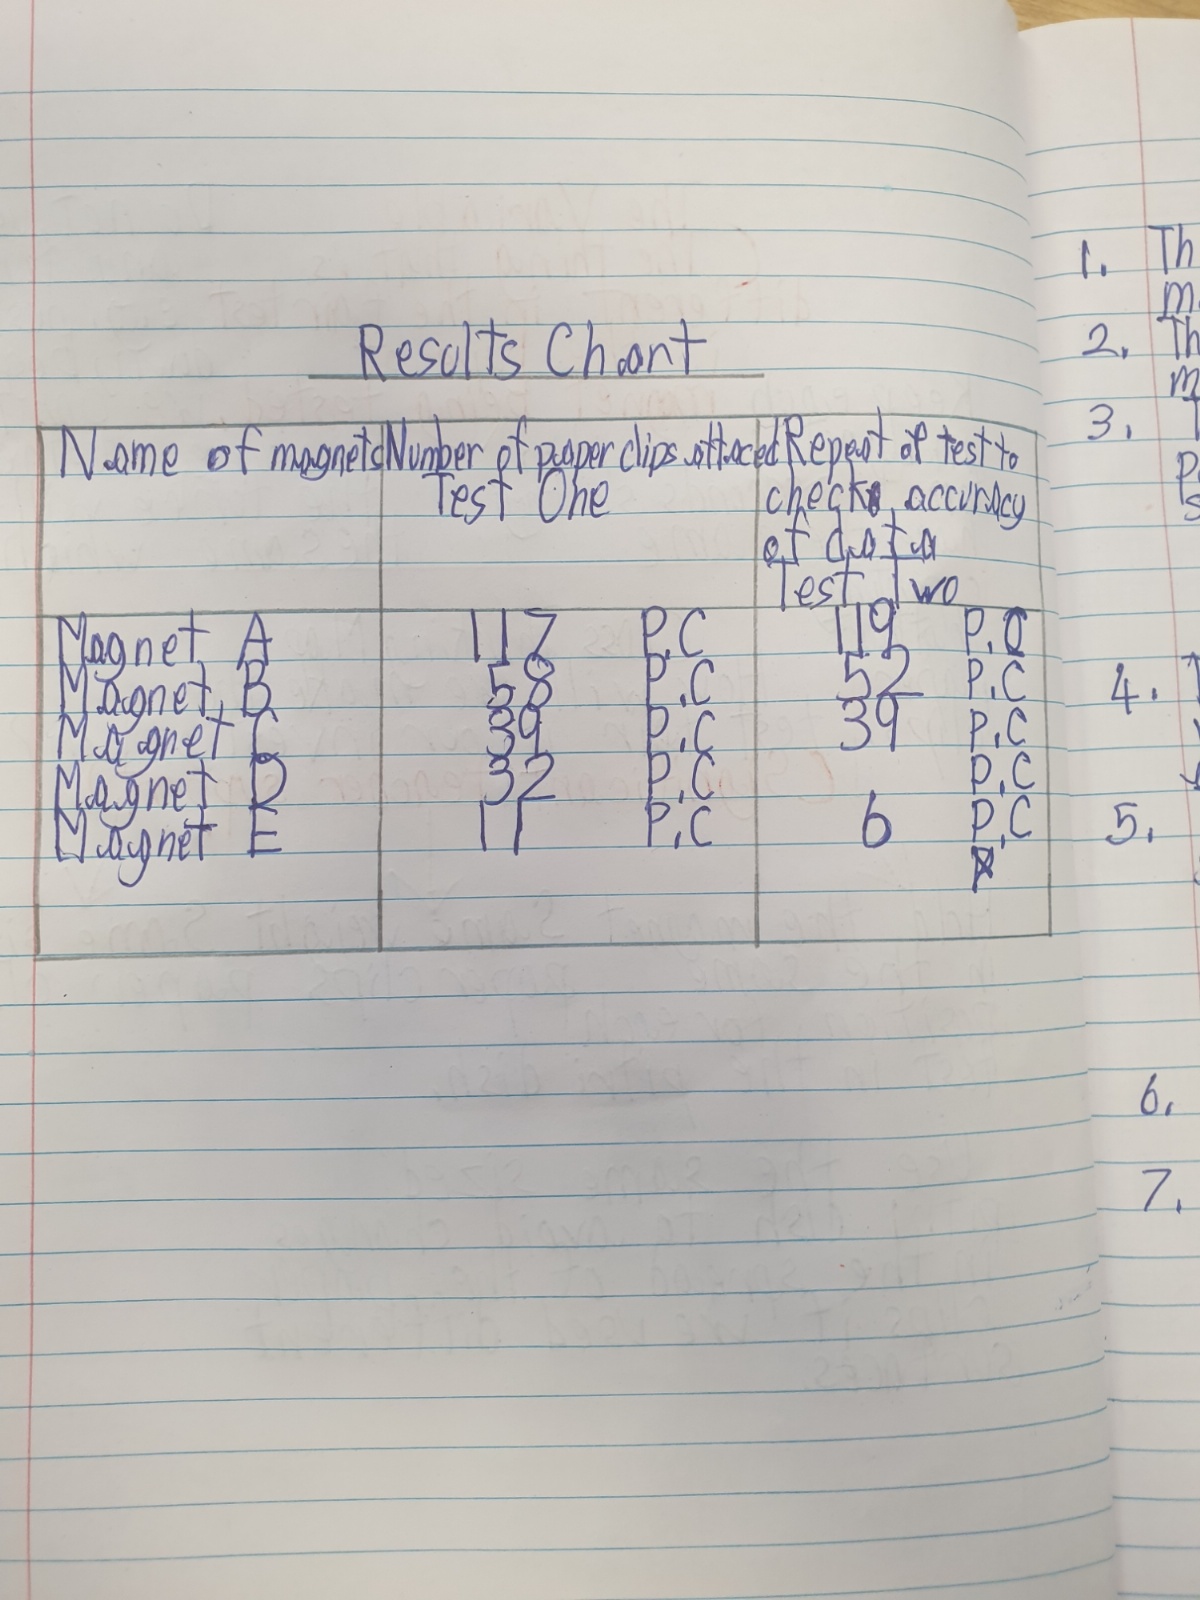 Results Chart
Name of magnets Number of paper clips attaced Repeat of test to
Test One check accuracy
of data
Test Two
Magnet A 117 P.C 119 P.C
Magnet B 58 P.C 52 P.C
Magnet C 39 P.C 39 P.C
Magnet D 32 P.C P.C
Magnet E 11 P.C 6 P.C
1. Th
2. Th
3.
4.
5.
6.
7.